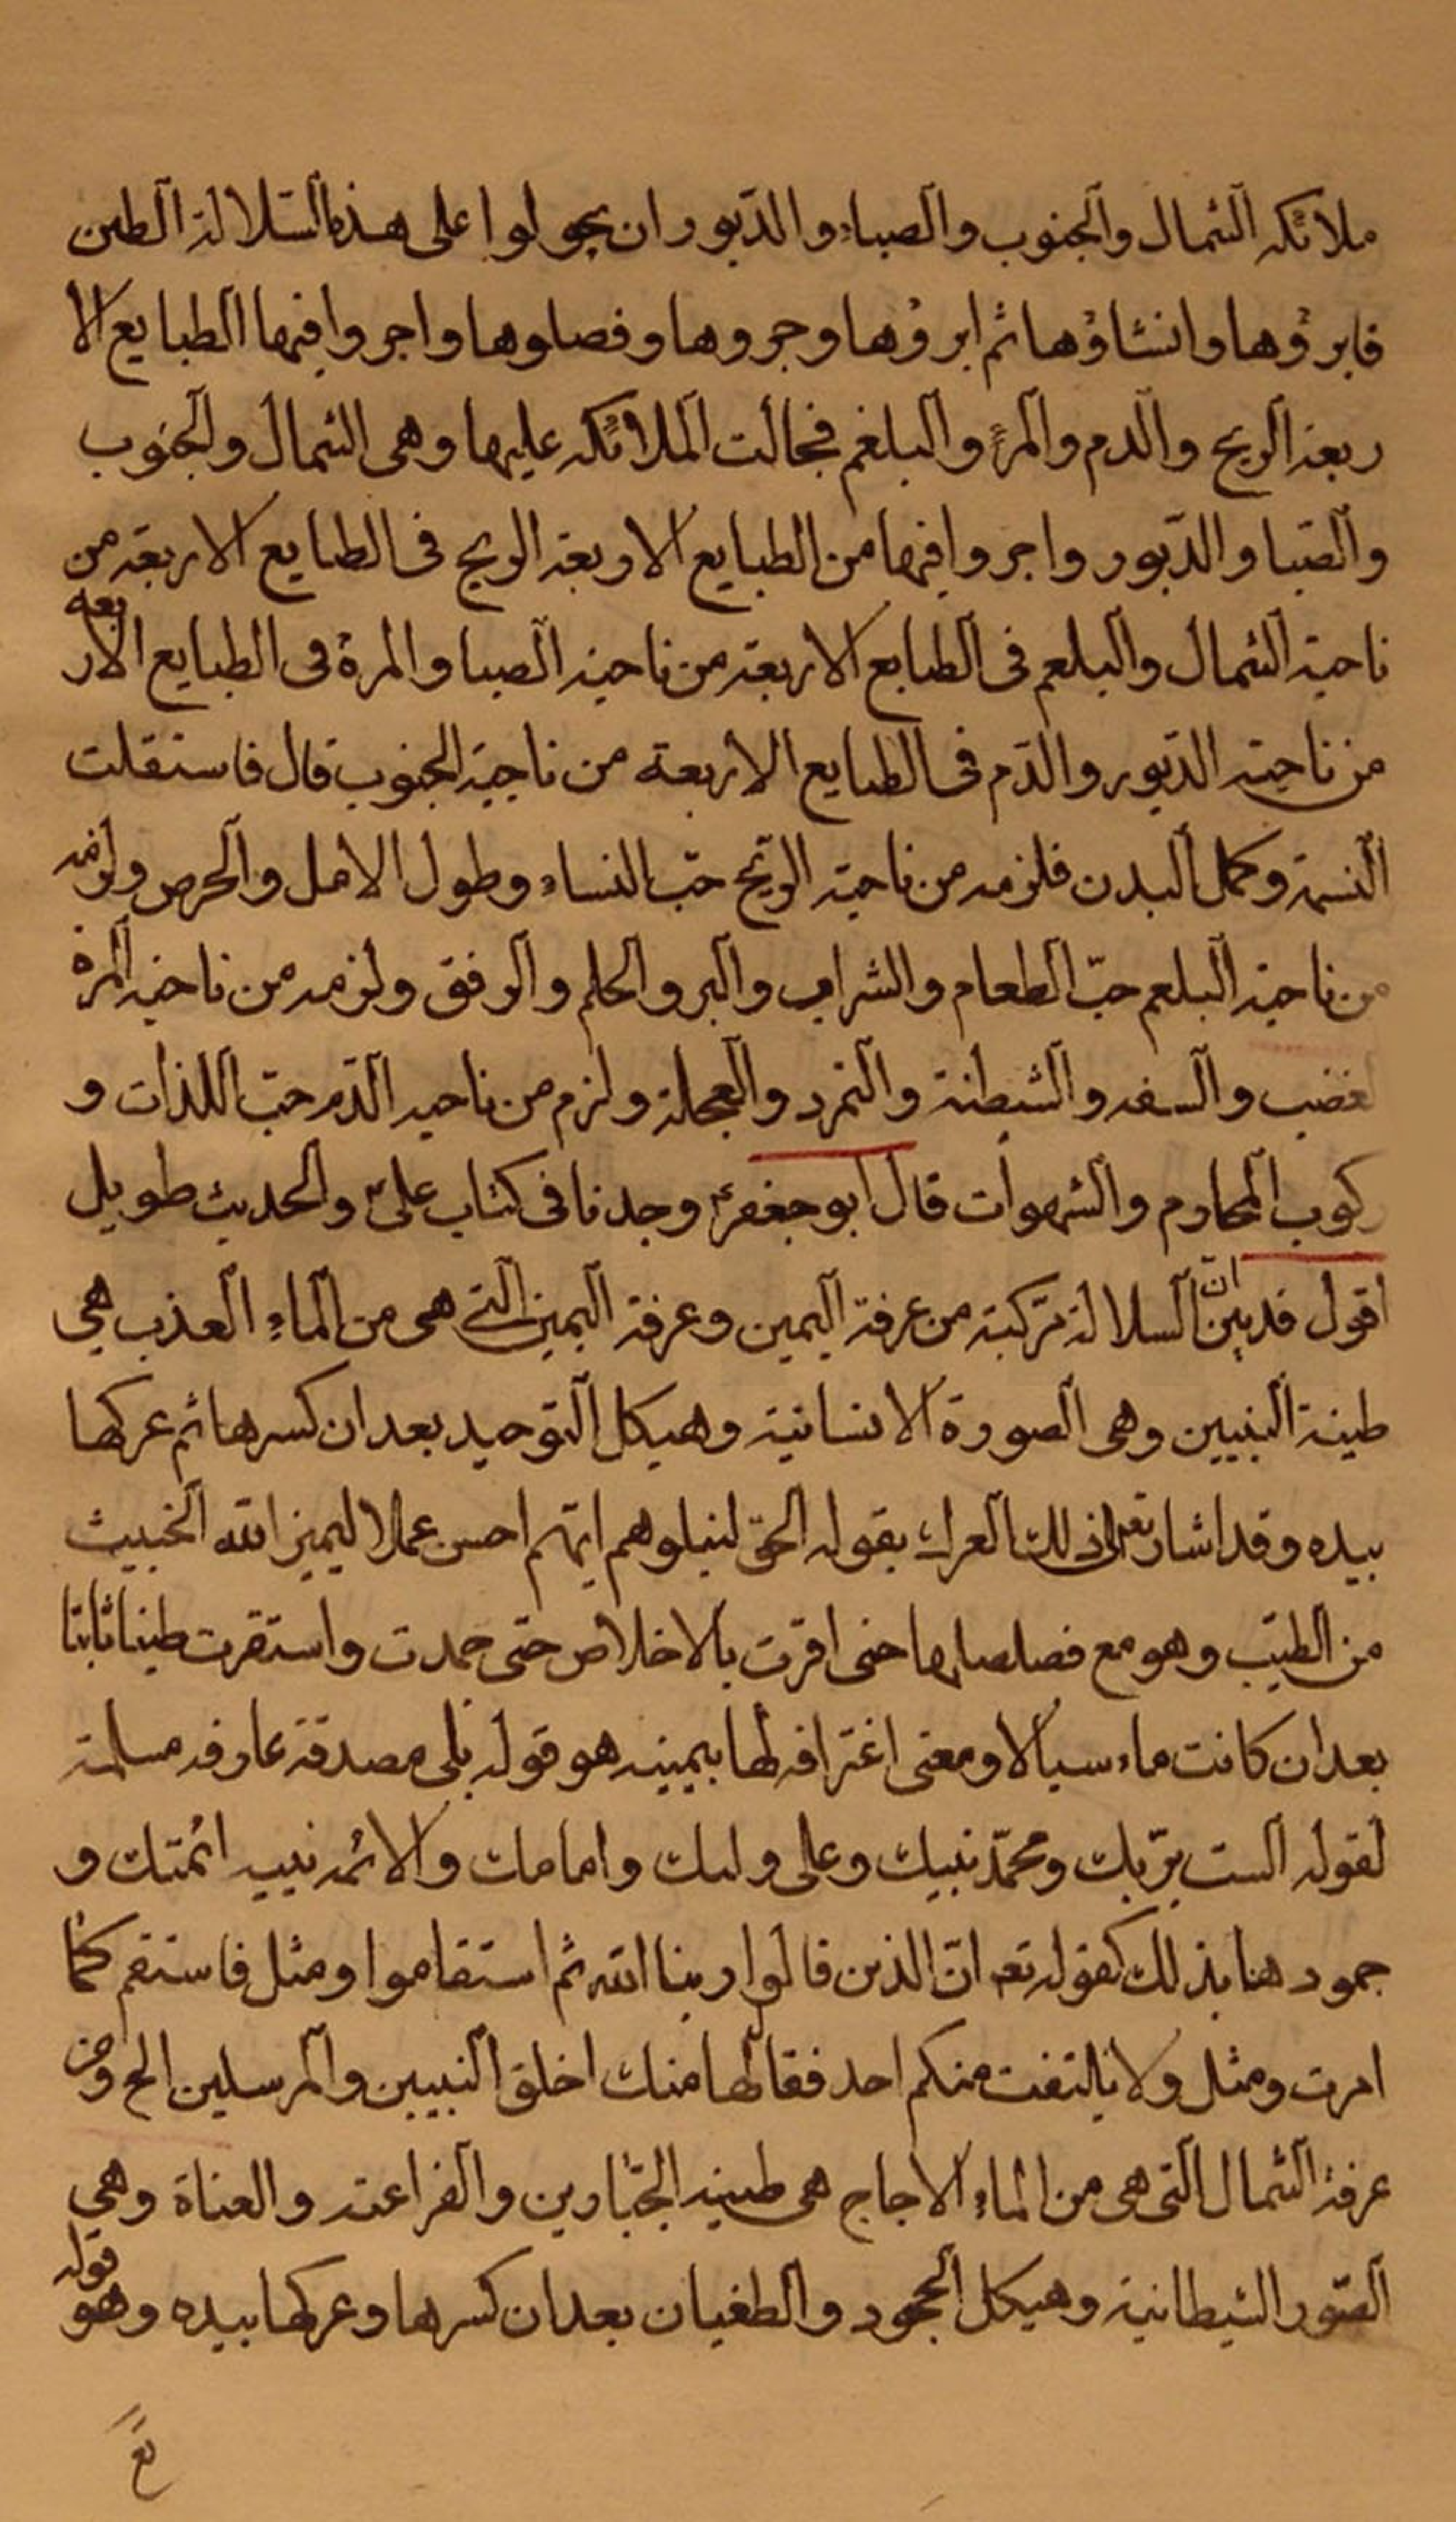 ملائكه الشمال والجنوب والصباء والدبور ان يجولوا على هذه السلالة الطين
فابرؤها وانشاؤها ثم ابرؤها وجروها وفصلوها واجروا فيها الطبايع الا
ربعة الريح والدم والمرة والبلغم فجالت الملائكه عليها وهى الشمال والجنوب
والصبا والدبور واجروا فيها من الطبايع الاربعة الريح فى الطبايع الاربعة من
ناحية الشمال والبلغم فى الطبايع الاربعة من ناحية الصبا والمرة فى الطبايع الاربعه
من ناحية الدبور والدم فى الطبايع الاربعة من ناحية الجنوب قال فاستقلت
النسمة وكمل البدن فلزمه من ناحية الريح حب النساء وطول الامل والحرص ولزمه
من ناحية البلغم حب الطعام والشراب والبر والحلم والرفق ولزمه من ناحية المرة
الغضب والسفه والشيطنة والتمرد والعجلة ولزم من ناحيه الدم حب اللذات و
ركوب المحارم والشهوات قال ابو جعفر وجدنا فى كتاب على والحديث طويل
اقول قد بين ان السلالة تركبة من عرفة اليمين وعرفة اليمين التى هى من الماء العذب هى
طينة النبيين وهى الصورة الانسانية وهيكل التوحيد بعد ان كسرها ثم عركها
بيده وقد اشار تعه الى ذلك العرك بقوله الحق لنبلوهم ايهم احسن عملا ليميز الله الخبيث
من الطيب وهو مع حتى اقرت بالاخلاص حتى جمدت واستقرت طينا ثابتا
بعد ان كانت ماء سيالا ومعنى اغترافه لها بيمينه هو قوله بلى مصدقة عارفه مسلمة
لقوله الست بربك ومحمد نبيك وعلى وليك وامامك والائمه بنيه ائمتك و
جمودها بذلك كقوله تعه ان الذين قالوا ربنا الله ثم استقاموا ومثل فاستقم كما
امرت ومثل ولا يلتفت منكم احد فقال لها منك اخلق النبيين والمرسلين الخ ومن
عرفة الشمال التى هى من الماء الاجاج هى طينة الجبارين والفراعنة والعتاة وهى
الصور الشيطانية وهيكل الجحود والطغيان بعد ان كسرها وعركها بيده وهو قوله